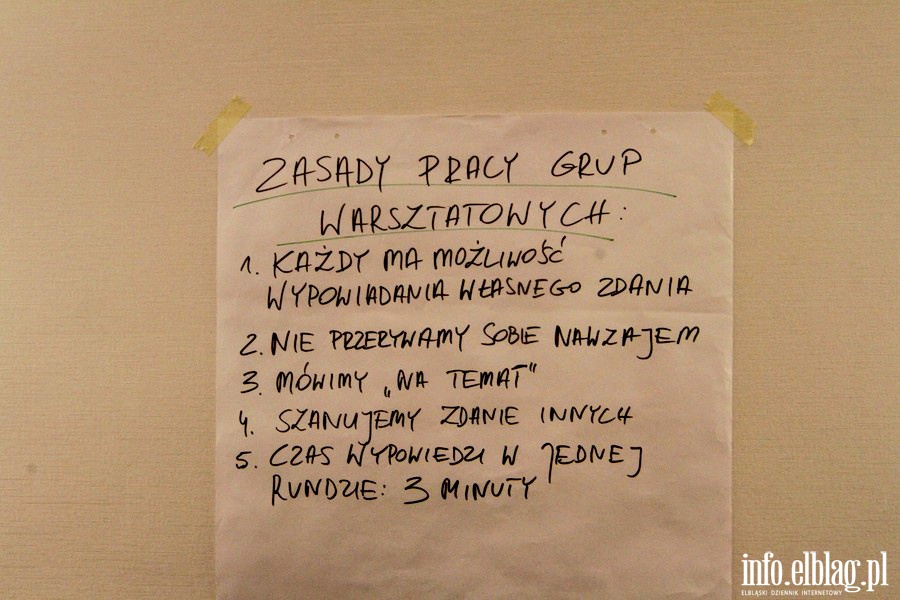 ZASADY PRACY GRUP
WARSZTATOWYCH:
1. KAŻDY MA MOŻLIWOŚĆ
WYPOWIADANIA WŁASNEGO ZDANIA
2. NIE PRZERYWAMY SOBIE NAWZAJEM
3. MÓWIMY „NA TEMAT"
4. SZANUJEMY ZDANIE INNYCH
5. CZAS WYPOWIEDZI W JEDNEJ
RUNDZIE: 3 MINUTY
info.elblag.pl
ELBLĄSKI DZIENNIK INTERNETOWY